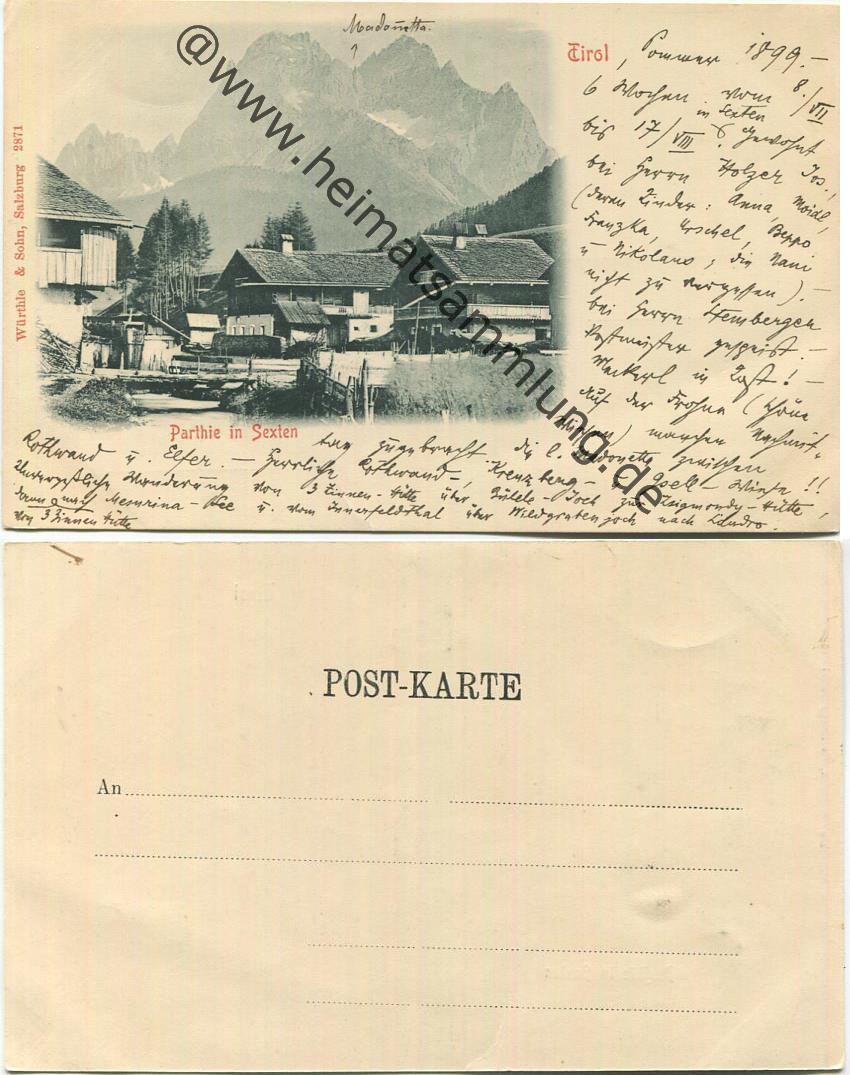 Madonetta.
@www.heimatsammlung.de
Würthle & Sohn, Salzburg 2871
Tirol, Sommer 1899.–
6 Wochen vom 8./VII
in Sexten
bis 17/VIII gewohnt
bei Herrn Holzer Jos.,
(deren Kinder: Anna, Moidl,
Franzka, Urschel, Beppo
u Nikolaus; die Nani
nicht zu vergessen).–
bei Herrn Stemberger
Postmeister gespeist.–
in Tost!–
Auf der Frohne (schöne
) manchen Nachmit-
Parthie in Sexten
tag zugebracht die l. Madonetta zwischen
Rothwand u Elfer.– Herrliche Rothwand-, Kreuzberg-, Gsell-Wiese!!
Unvergeßliche Wanderung von 3 Zinnen-Hütte über Joch zur Zsigmondy-Hütte,
dann nach Mesurina-See u. vom Innerfeldthal über Wildgrabenjoch nach Landro.
von 3 Zinnen Hütte
POST-KARTE
An